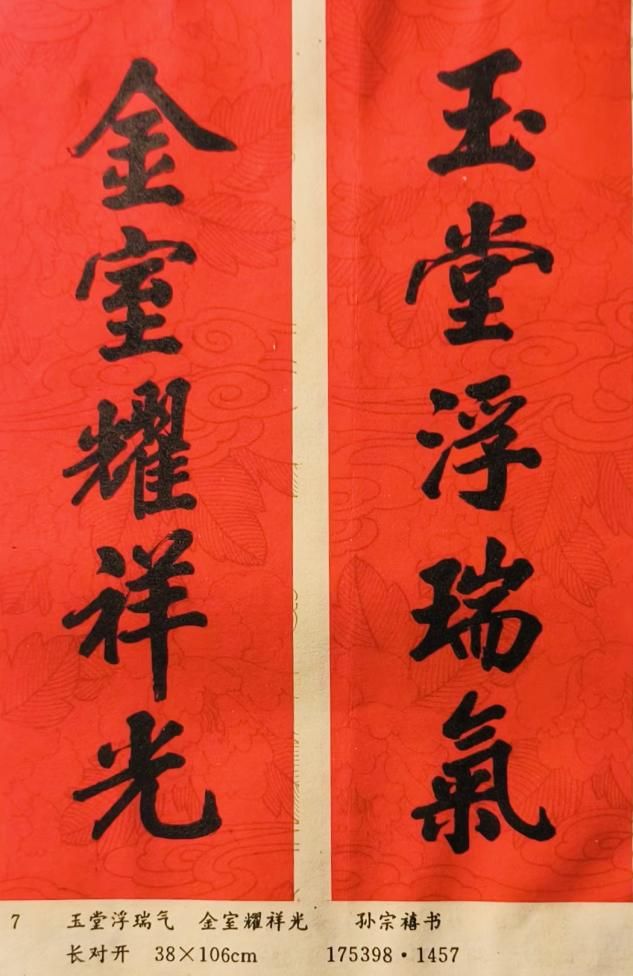 玉堂浮瑞氣
金室耀祥光
7 玉堂浮瑞气 金室耀祥光 孙宗禧书
长对开 38×106cm 175398·1457